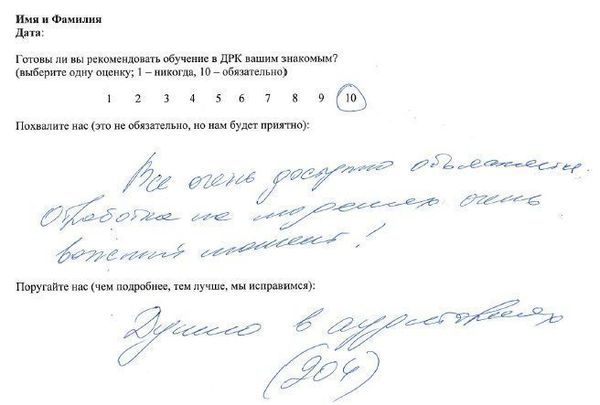 Имя и Фамилия
Дата:
Готовы ли вы рекомендовать обучение в ДРК вашим знакомым?
(выберите одну оценку; 1 – никогда, 10 – обязательно)
1 2 3 4 5 6 7 8 9 10
Похвалите нас (это не обязательно, но нам будет приятно):
Все очень доступно
Отработка на очень
важный момент!
Поругайте нас (чем подробнее, тем лучше, мы исправимся):
Душно в аудиториях
(204)